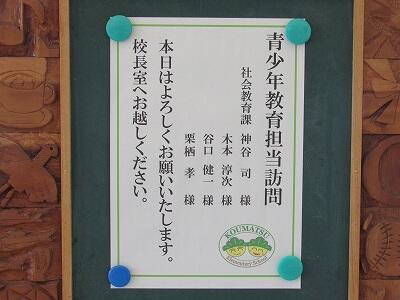 青少年教育担当訪問
社会教育課 神谷 司 様
木本 淳次 様
谷口 健一 様
栗栖 孝 様
本日はよろしくお願いいたします。
校長室へお越しください。
KOUMATSU
Elementary School